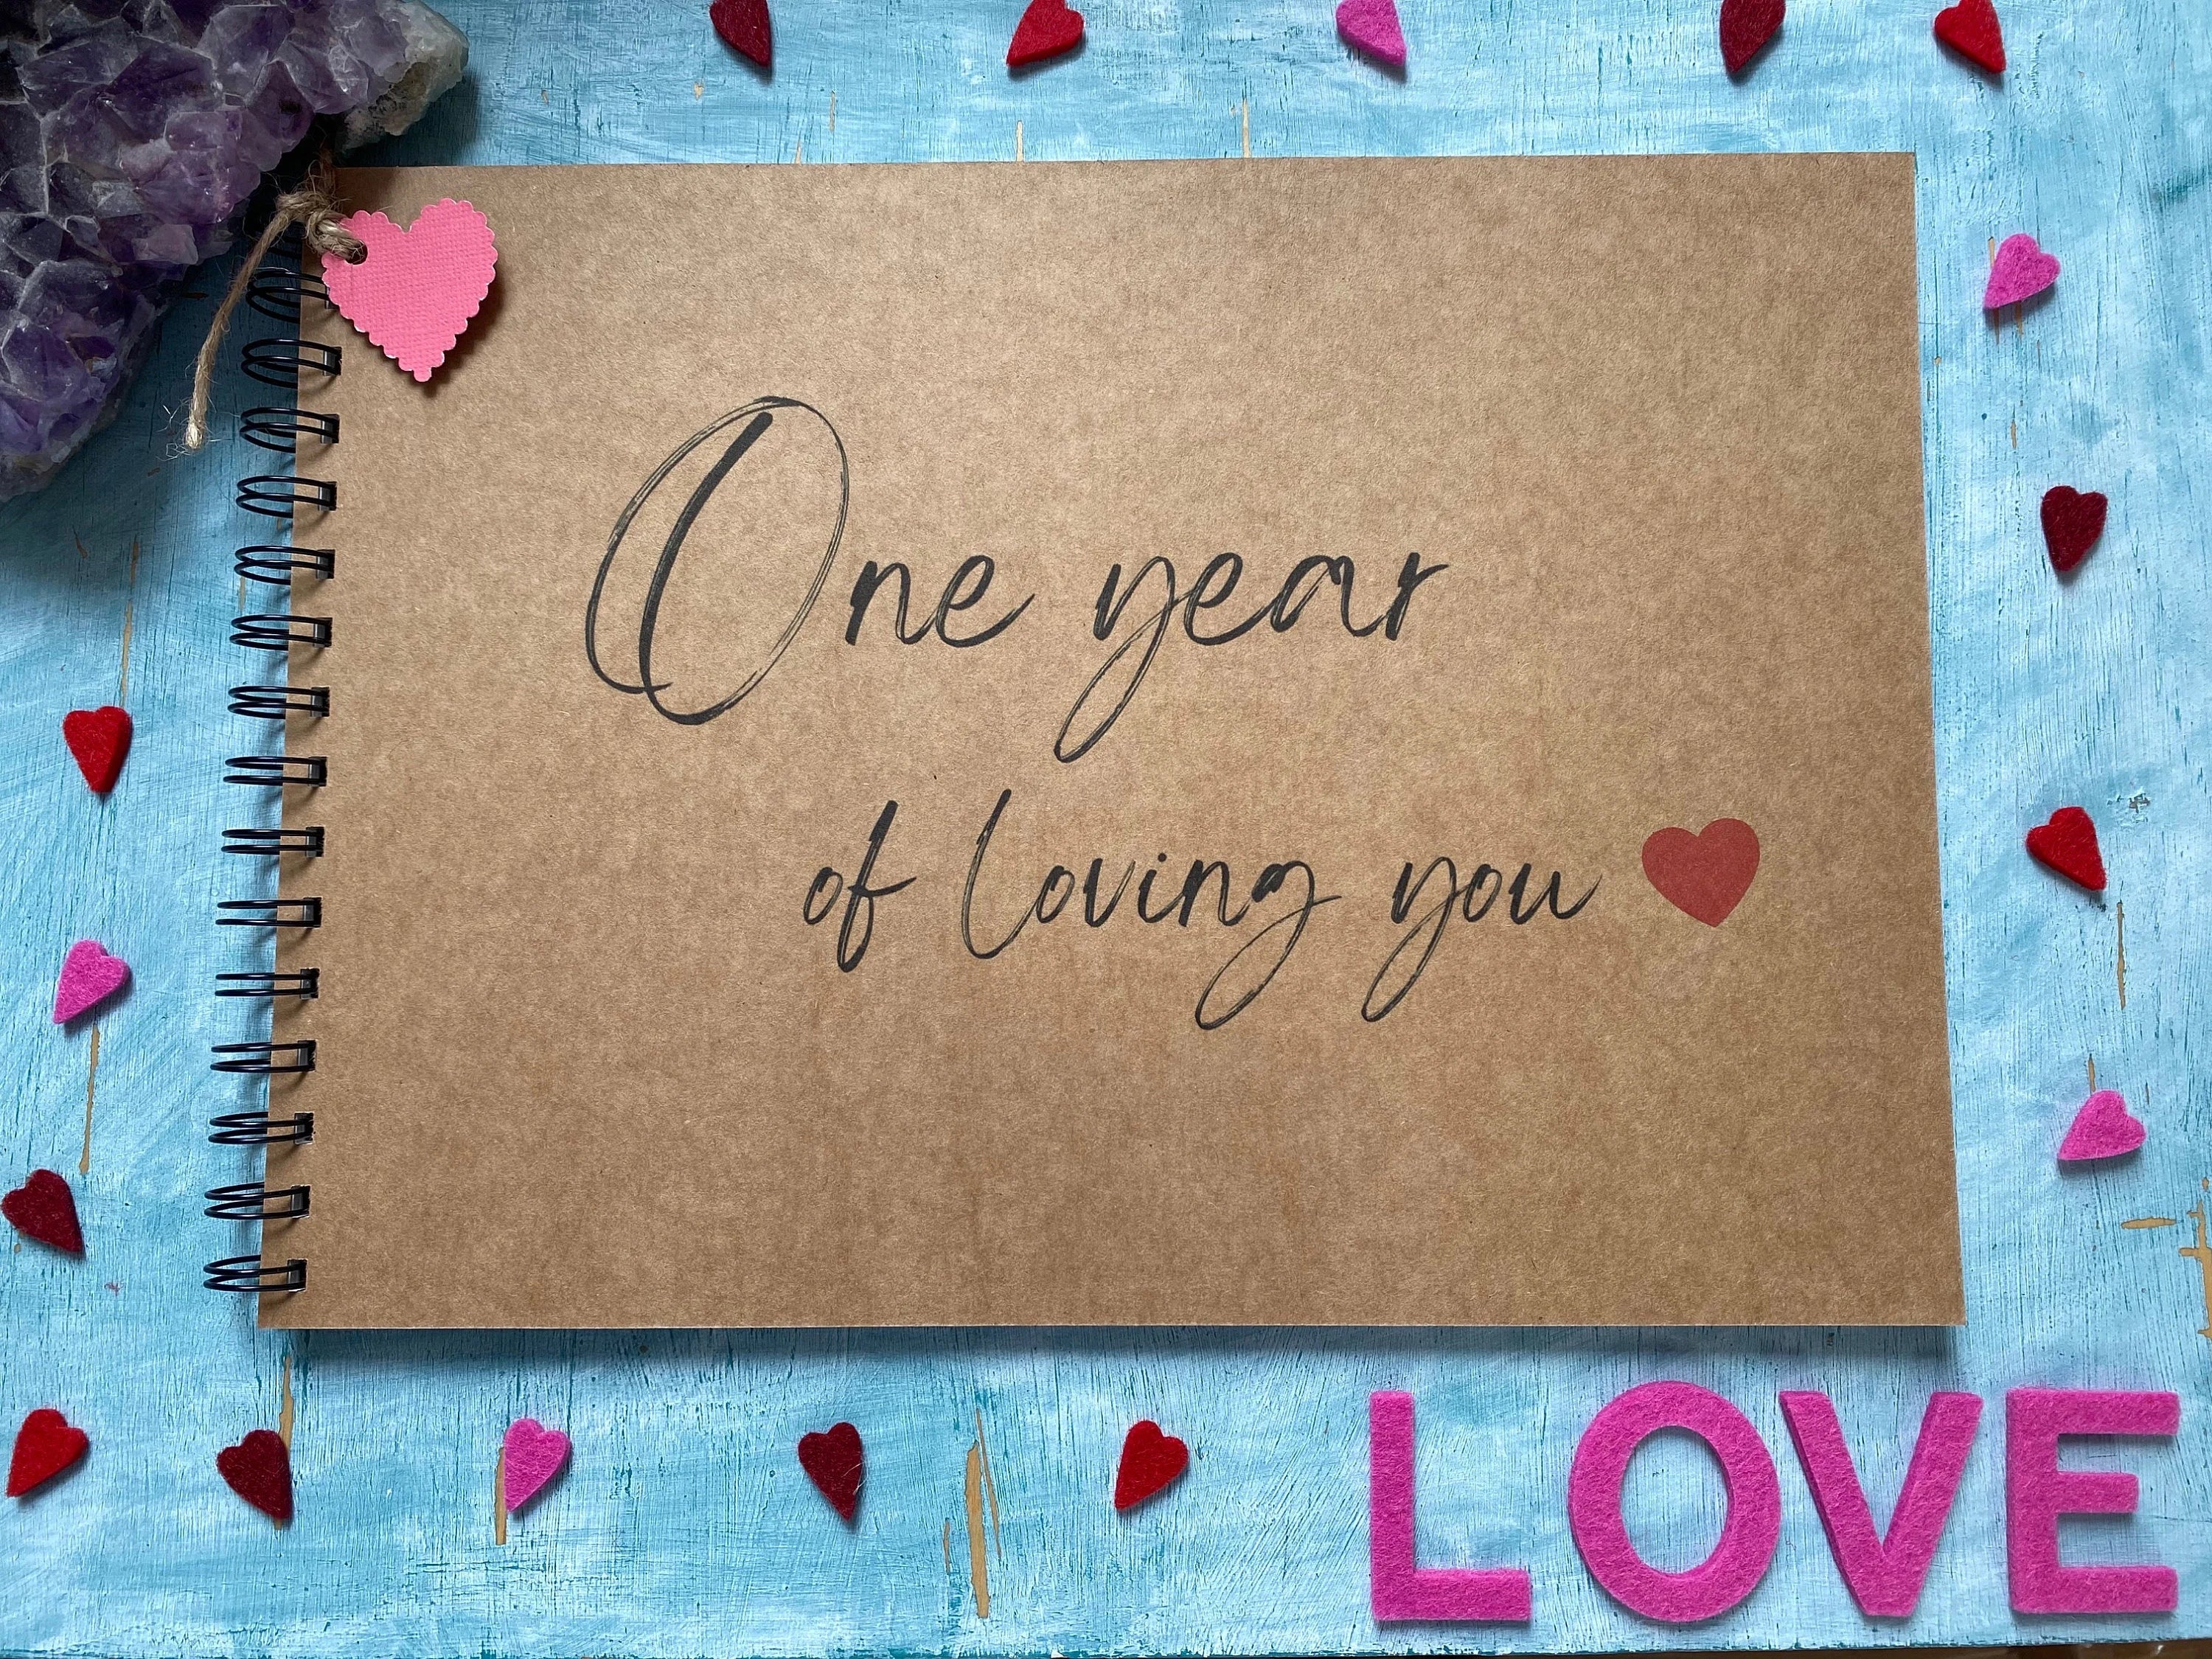 One year
of loving you
LOVE